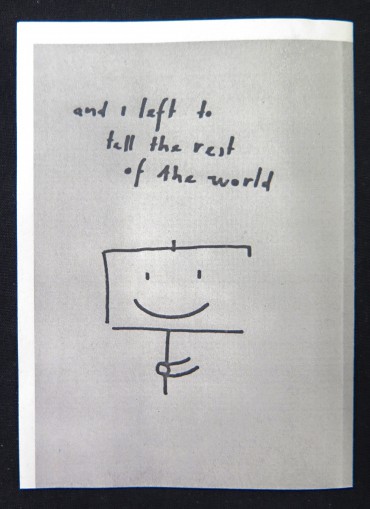 and i left to
tell the rest
of the world